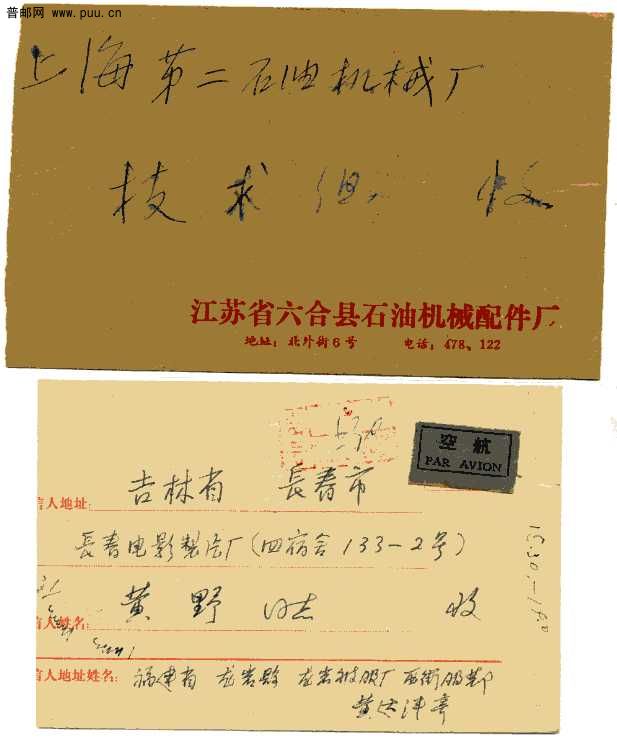 普邮网 www.puu.cn
上海第二石油机械厂
技术组 收
江苏省六合县石油机械配件厂
地址：北外街6号 电话：478、122
空航
PAR AVION
吉林省 長春市
信人地址：
長春电影製片厂(四宿舍133-2号)
黄野同志 收
信人姓名：
信人地址姓名：福建省 龙岩縣 龙岩被服厂 西街服部